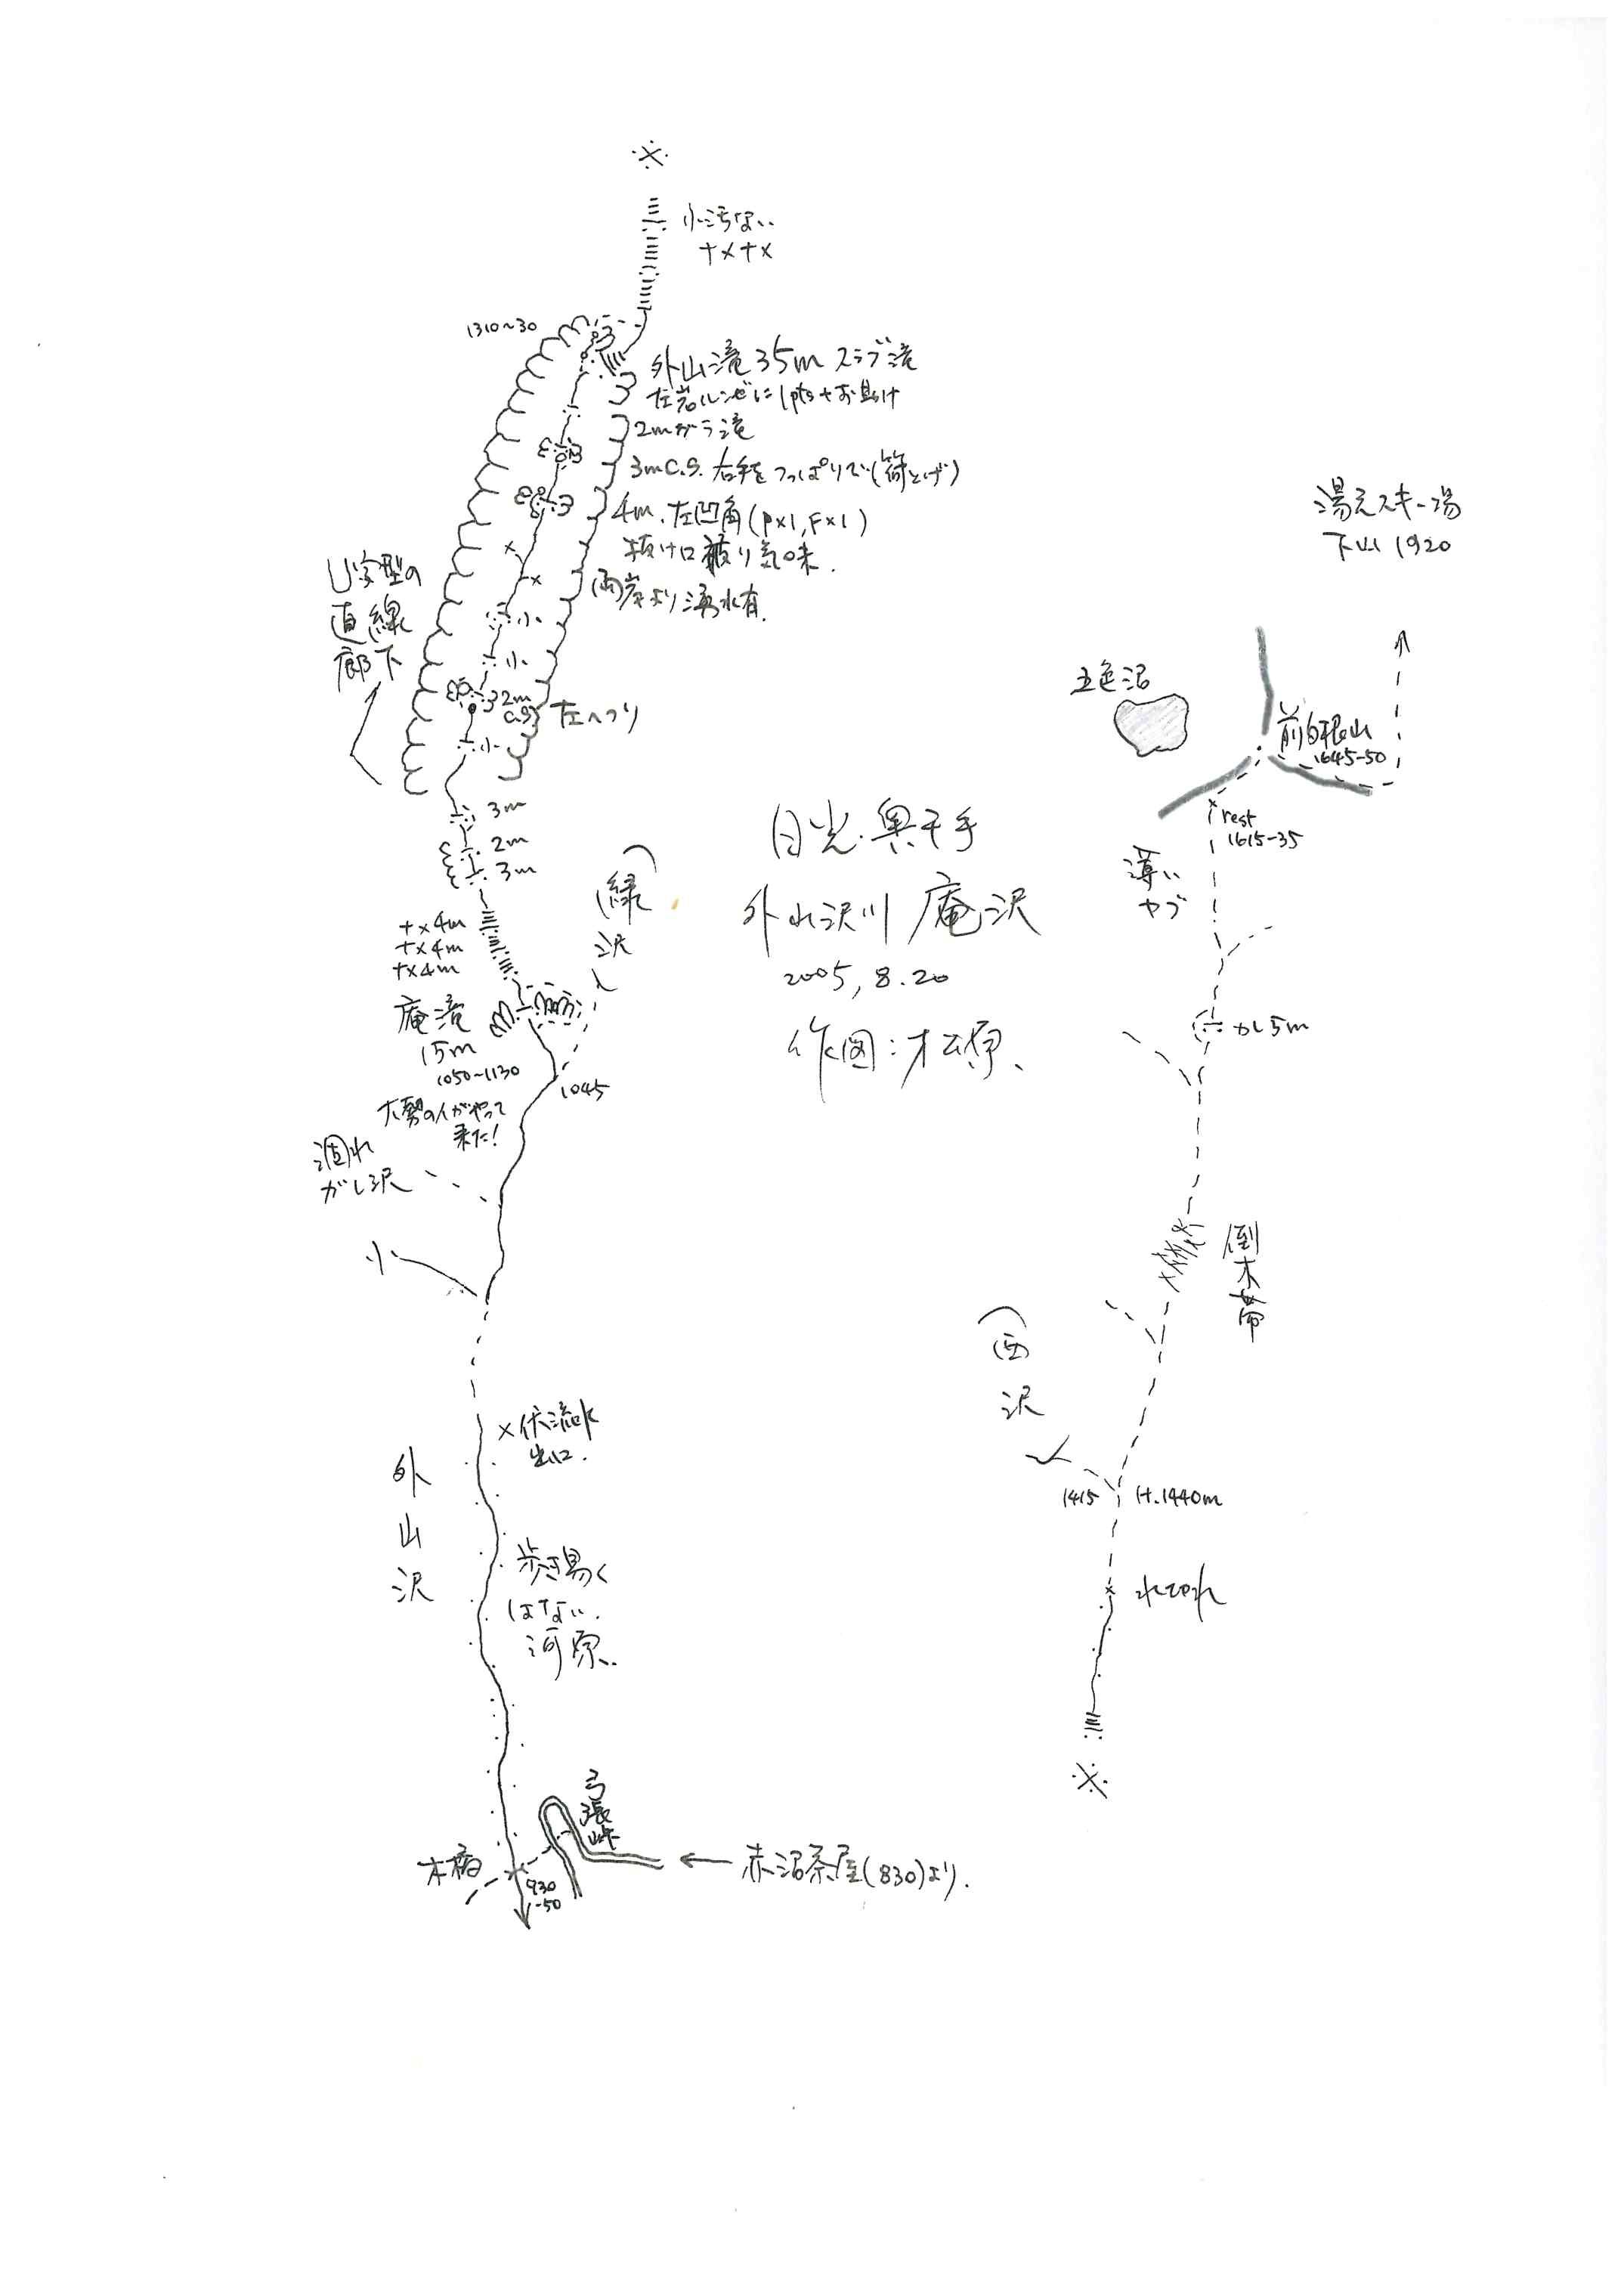 小汚ない
ナメナメ
1310~30
外山滝 35m スラブ滝
左岩ルンゼに1pts+お助け
2mガラ滝
3mC.S. 右手をつっぱりで(荷上げ)
4m. 左凹角(P×1, F×1)
抜け口被り気味.
両岸より湧水有.
U字型の
直線
廊下
小
小
2m
C.S
左へつり
小
3m
2m
3m
ナメ4m
ナメ4m
ナメ4m
(緑
沢
庵滝
15m
1050~1130
大勢の人がやって
来た!
1045
涸れ
ガレ沢
小
×伏流水
出口.
外
山
沢
歩き易く
はない.
河原.
弓
張
峠
木橋
930
-50
← 赤沼茶屋(830)より.
日光.奥千手
外山沢川 庵沢
2005, 8.20
作図:松原.
湯元スキー場
下山 1920
五色沼
前白根山
1645-50
rest
1615-35
薄い
ヤブ
カレ5m
倒
木
帯
(西
沢
1415
H.1440m
水切れ